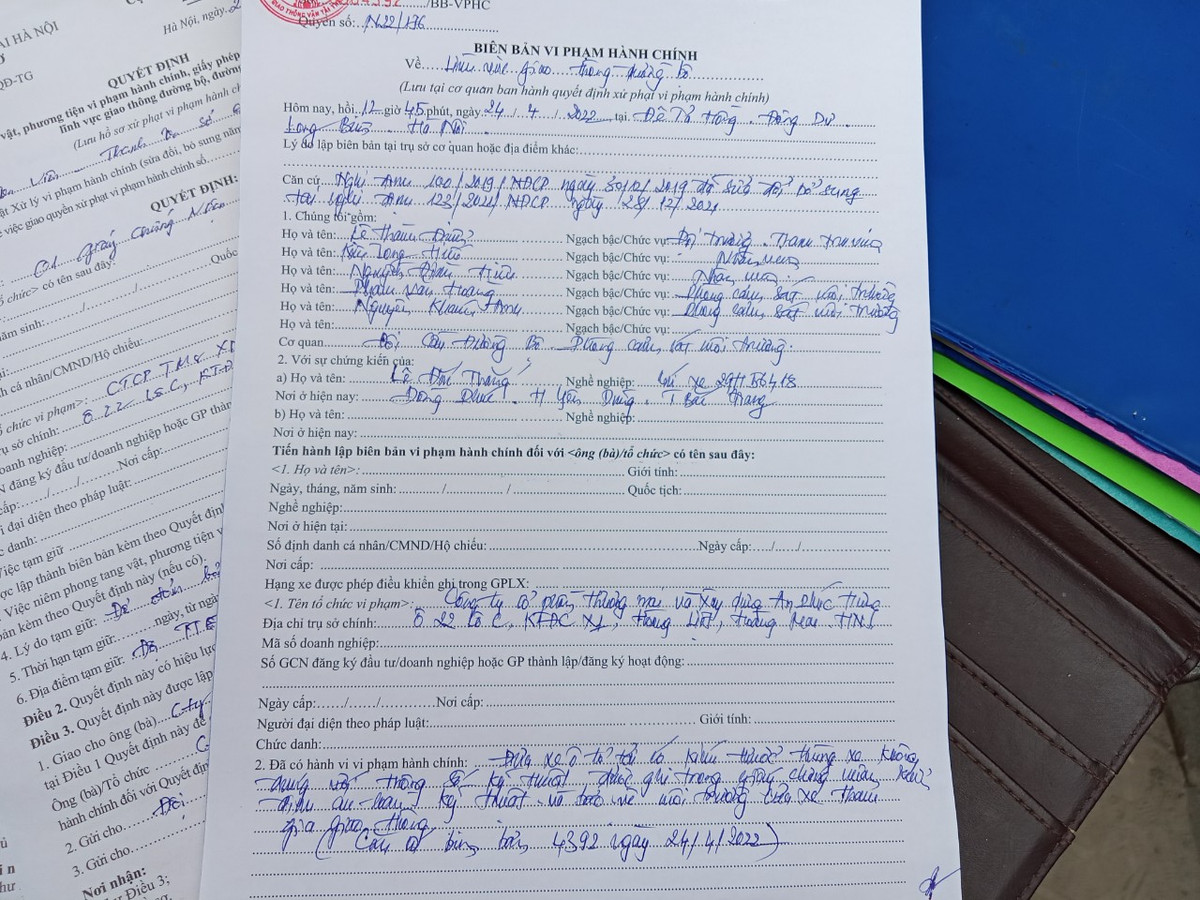 /BB-VPHC
GIAO THÔNG VẬN TẢI
Quyển số: N22/176
BIÊN BẢN VI PHẠM HÀNH CHÍNH
Về Lĩnh vực giao thông đường bộ
(Lưu tại cơ quan ban hành quyết định xử phạt vi phạm hành chính)
Hôm nay, hồi 12 giờ 45 phút, ngày 24/4/2022 tại Đê Tô Hông. Đông Dư.
Long Biên. Hà Nội
Lý do lập biên bản tại trụ sở cơ quan hoặc địa điểm khác:
Căn cứ Nghị định 100/2019/NĐCP ngày 30/12/2019 đã sửa đổi bổ sung
tại Nghị định 123/2021/NĐCP ngày 28/12/2021
1. Chúng tôi gồm:
Họ và tên: Lê Thanh Ngạch bậc/Chức vụ: Đội trưởng. Thanh tra viên
Họ và tên: Long Hiếu Ngạch bậc/Chức vụ: Nhân viên
Họ và tên: Nguyễn Hiếu Ngạch bậc/Chức vụ: Nhân viên
Họ và tên: Phạm Văn Hoàng Ngạch bậc/Chức vụ: Phòng cảnh sát môi trường
Họ và tên: Nguyễn Khánh Ngạch bậc/Chức vụ: Phòng cảnh sát môi trường
Họ và tên: Ngạch bậc/Chức vụ:
Cơ quan Đội Cầu Đường Bộ. Phòng cảnh sát môi trường.
2. Với sự chứng kiến của:
a) Họ và tên: Lê Thắng Nghề nghiệp: Lái xe 29H
Nơi ở hiện nay: Đồng Phúc. H Yên Dũng. T Bắc Giang
b) Họ và tên: Nghề nghiệp:
Nơi ở hiện nay:
Tiến hành lập biên bản vi phạm hành chính đối với <ông (bà)/tổ chức> có tên sau đây:
<1. Họ và tên>: Giới tính:
Ngày, tháng, năm sinh: / / Quốc tịch:
Nghề nghiệp:
Nơi ở hiện tại:
Số định danh cá nhân/CMND/Hộ chiếu: Ngày cấp: / /
Nơi cấp:
Hạng xe được phép điều khiển ghi trong GPLX:
<1. Tên tổ chức vi phạm>: Công ty cổ phần thương mại và Xây dựng An Phúc Hưng
Địa chỉ trụ sở chính: Ô 22 lô C, KTĐC X1, Hoàng Liệt, Hoàng Mai HN
Mã số doanh nghiệp:
Số GCN đăng ký đầu tư/doanh nghiệp hoặc GP thành lập/đăng ký hoạt động:
Ngày cấp: / / Nơi cấp:
Người đại diện theo pháp luật: Giới tính:
Chức danh:
2. Đã có hành vi vi phạm hành chính: Đưa xe ô tô tải có kích thước thùng xe không
đúng với thông số kỹ thuật được ghi trong giấy chứng nhận kiểm
định an toàn kỹ thuật và bảo vệ môi trường của xe tham
gia giao thông
(Căn cứ biên bản 4392 ngày 24/4/2022)
ẢI HÀ NỘI
QĐ-TG
Hà Nội, ngày
QUYẾT ĐỊNH
vật, phương tiện vi phạm hành chính, giấy phép
lĩnh vực giao thông đường bộ, đường
(Lưu hồ sơ xử phạt vi phạm hành chính
Viên Thanh tra Sở
vật Xử lý vi phạm hành chính (sửa đổi, bổ sung năm
việc giao quyền xử phạt vi phạm hành chính số
QUYẾT ĐỊNH:
01 giấy chứng nhận
chức> có tên sau đây:
Quốc
năm sinh: / /
nh cá nhân/CMND/Hộ chiếu:
chức vi phạm>: CTCP TM& XD
sở chính: Ô 22 lô C, KTĐ
oanh nghiệp:
N đăng ký đầu tư/doanh nghiệp hoặc GP thành
cấp: / / Nơi cấp:
i đại diện theo pháp luật:
c danh:
Việc tạm giữ
ợc lập thành biên bản kèm theo Quyết định
Việc niêm phong tang vật, phương tiện v
bản kèm theo Quyết định này (nếu có).
4. Lý do tạm giữ: Để đảm bả
5. Thời hạn tạm giữ: ngày, từ ngày
6. Địa điểm tạm giữ:
Điều 2. Quyết định này có hiệu lực
Điều 3. Quyết định này được lập
1. Giao cho ông (bà) Cty
tại Điều 1 Quyết định này để
Ông (bà)/Tổ chức
hành chính đối với Quyết định
2. Gửi cho Đội
3. Gửi cho
Nơi nhận:
Điều 3;